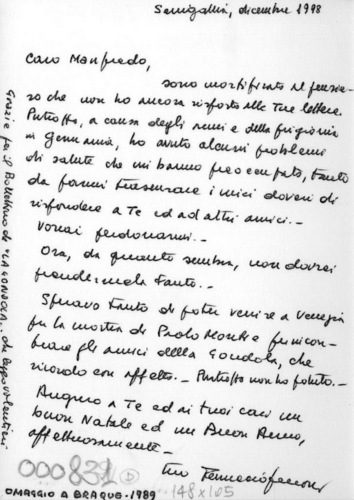 Senigallia, dicembre 1998
Caro Manfredo,
sono mortificato al pensie-
ro che non ho ancora risposto alle Tue lettere.
Purtroppo, a causa degli anni e della prigionia
in Germania, ho avuto alcuni problemi
di salute che mi hanno preoccupato, tanto
da farmi trascurare i miei doveri di
rispondere a Te ed ad altri amici.-
Vorrai perdonarmi.-
Ora, da quanto sembra, non dovrei
prendermela tanto.-
Speravo tanto di poter venire a Venezia
per la mostra di Paolo Monti e per incon-
trare gli amici della Gondola, che
ricordo con affetto.- Purtroppo non ho potuto.-
Auguro a Te ed ai tuoi cari un
buon Natale ed un Buon Anno,
affettuosamente-
Tuo Ferruccio Ferroni
Grazie per il Bollettino de "LA GONDOLA".. che leggo volentieri
000831 D
148x105
OMAGGIO A BRAQUE - 1989